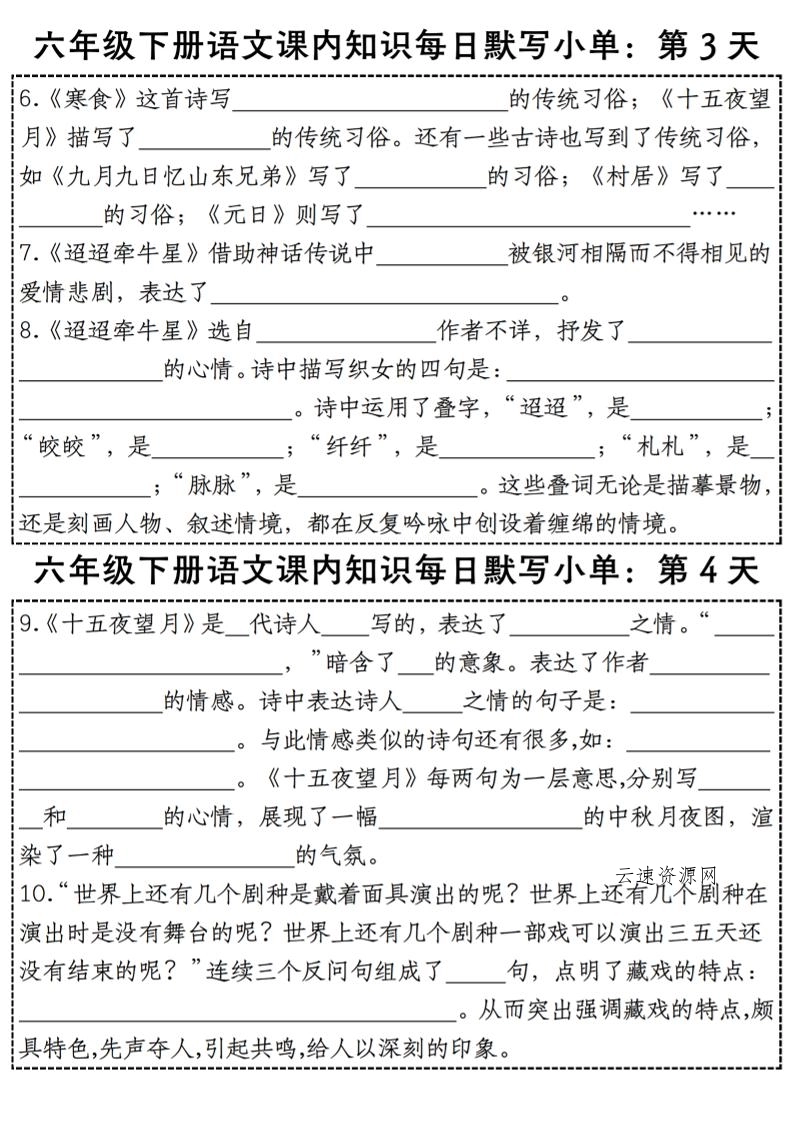 六年级下册语文课内知识每日默写小单：第 3 天
6.《寒食》这首诗写_______________________的传统习俗；《十五夜望
月》描写了___________的传统习俗。还有一些古诗也写到了传统习俗，
如《九月九日忆山东兄弟》写了___________的习俗；《村居》写了____
_______的习俗；《元日》则写了___________________________……
7.《迢迢牵牛星》借助神话传说中___________被银河相隔而不得相见的
爱情悲剧，表达了_____________________________。
8.《迢迢牵牛星》选自_______________作者不详，抒发了____________
____________的心情。诗中描写织女的四句是：______________________
_______________________。诗中运用了叠字，“迢迢”，是___________；
“皎皎”，是___________；“纤纤”，是_____________；“札札”，是__
___________；“脉脉”，是_______________。这些叠词无论是描摹景物，
还是刻画人物、叙述情境，都在反复吟咏中创设着缠绵的情境。
六年级下册语文课内知识每日默写小单：第 4 天
9.《十五夜望月》是__代诗人____写的，表达了__________之情。“_____
______________________，”暗含了___的意象。表达了作者__________
____________的情感。诗中表达诗人_____之情的句子是：____________
__________________。与此情感类似的诗句还有很多,如：____________
__________________。《十五夜望月》每两句为一层意思,分别写______
__和________的心情，展现了一幅_________________的中秋月夜图，渲
染了一种_______________的气氛。
云速资源网
10.“世界上还有几个剧种是戴着面具演出的呢？世界上还有几个剧种在
演出时是没有舞台的呢？世界上还有几个剧种一部戏可以演出三五天还
没有结束的呢？”连续三个反问句组成了_____句，点明了藏戏的特点：
____________________________________。从而突出强调藏戏的特点,颇
具特色,先声夺人,引起共鸣,给人以深刻的印象。